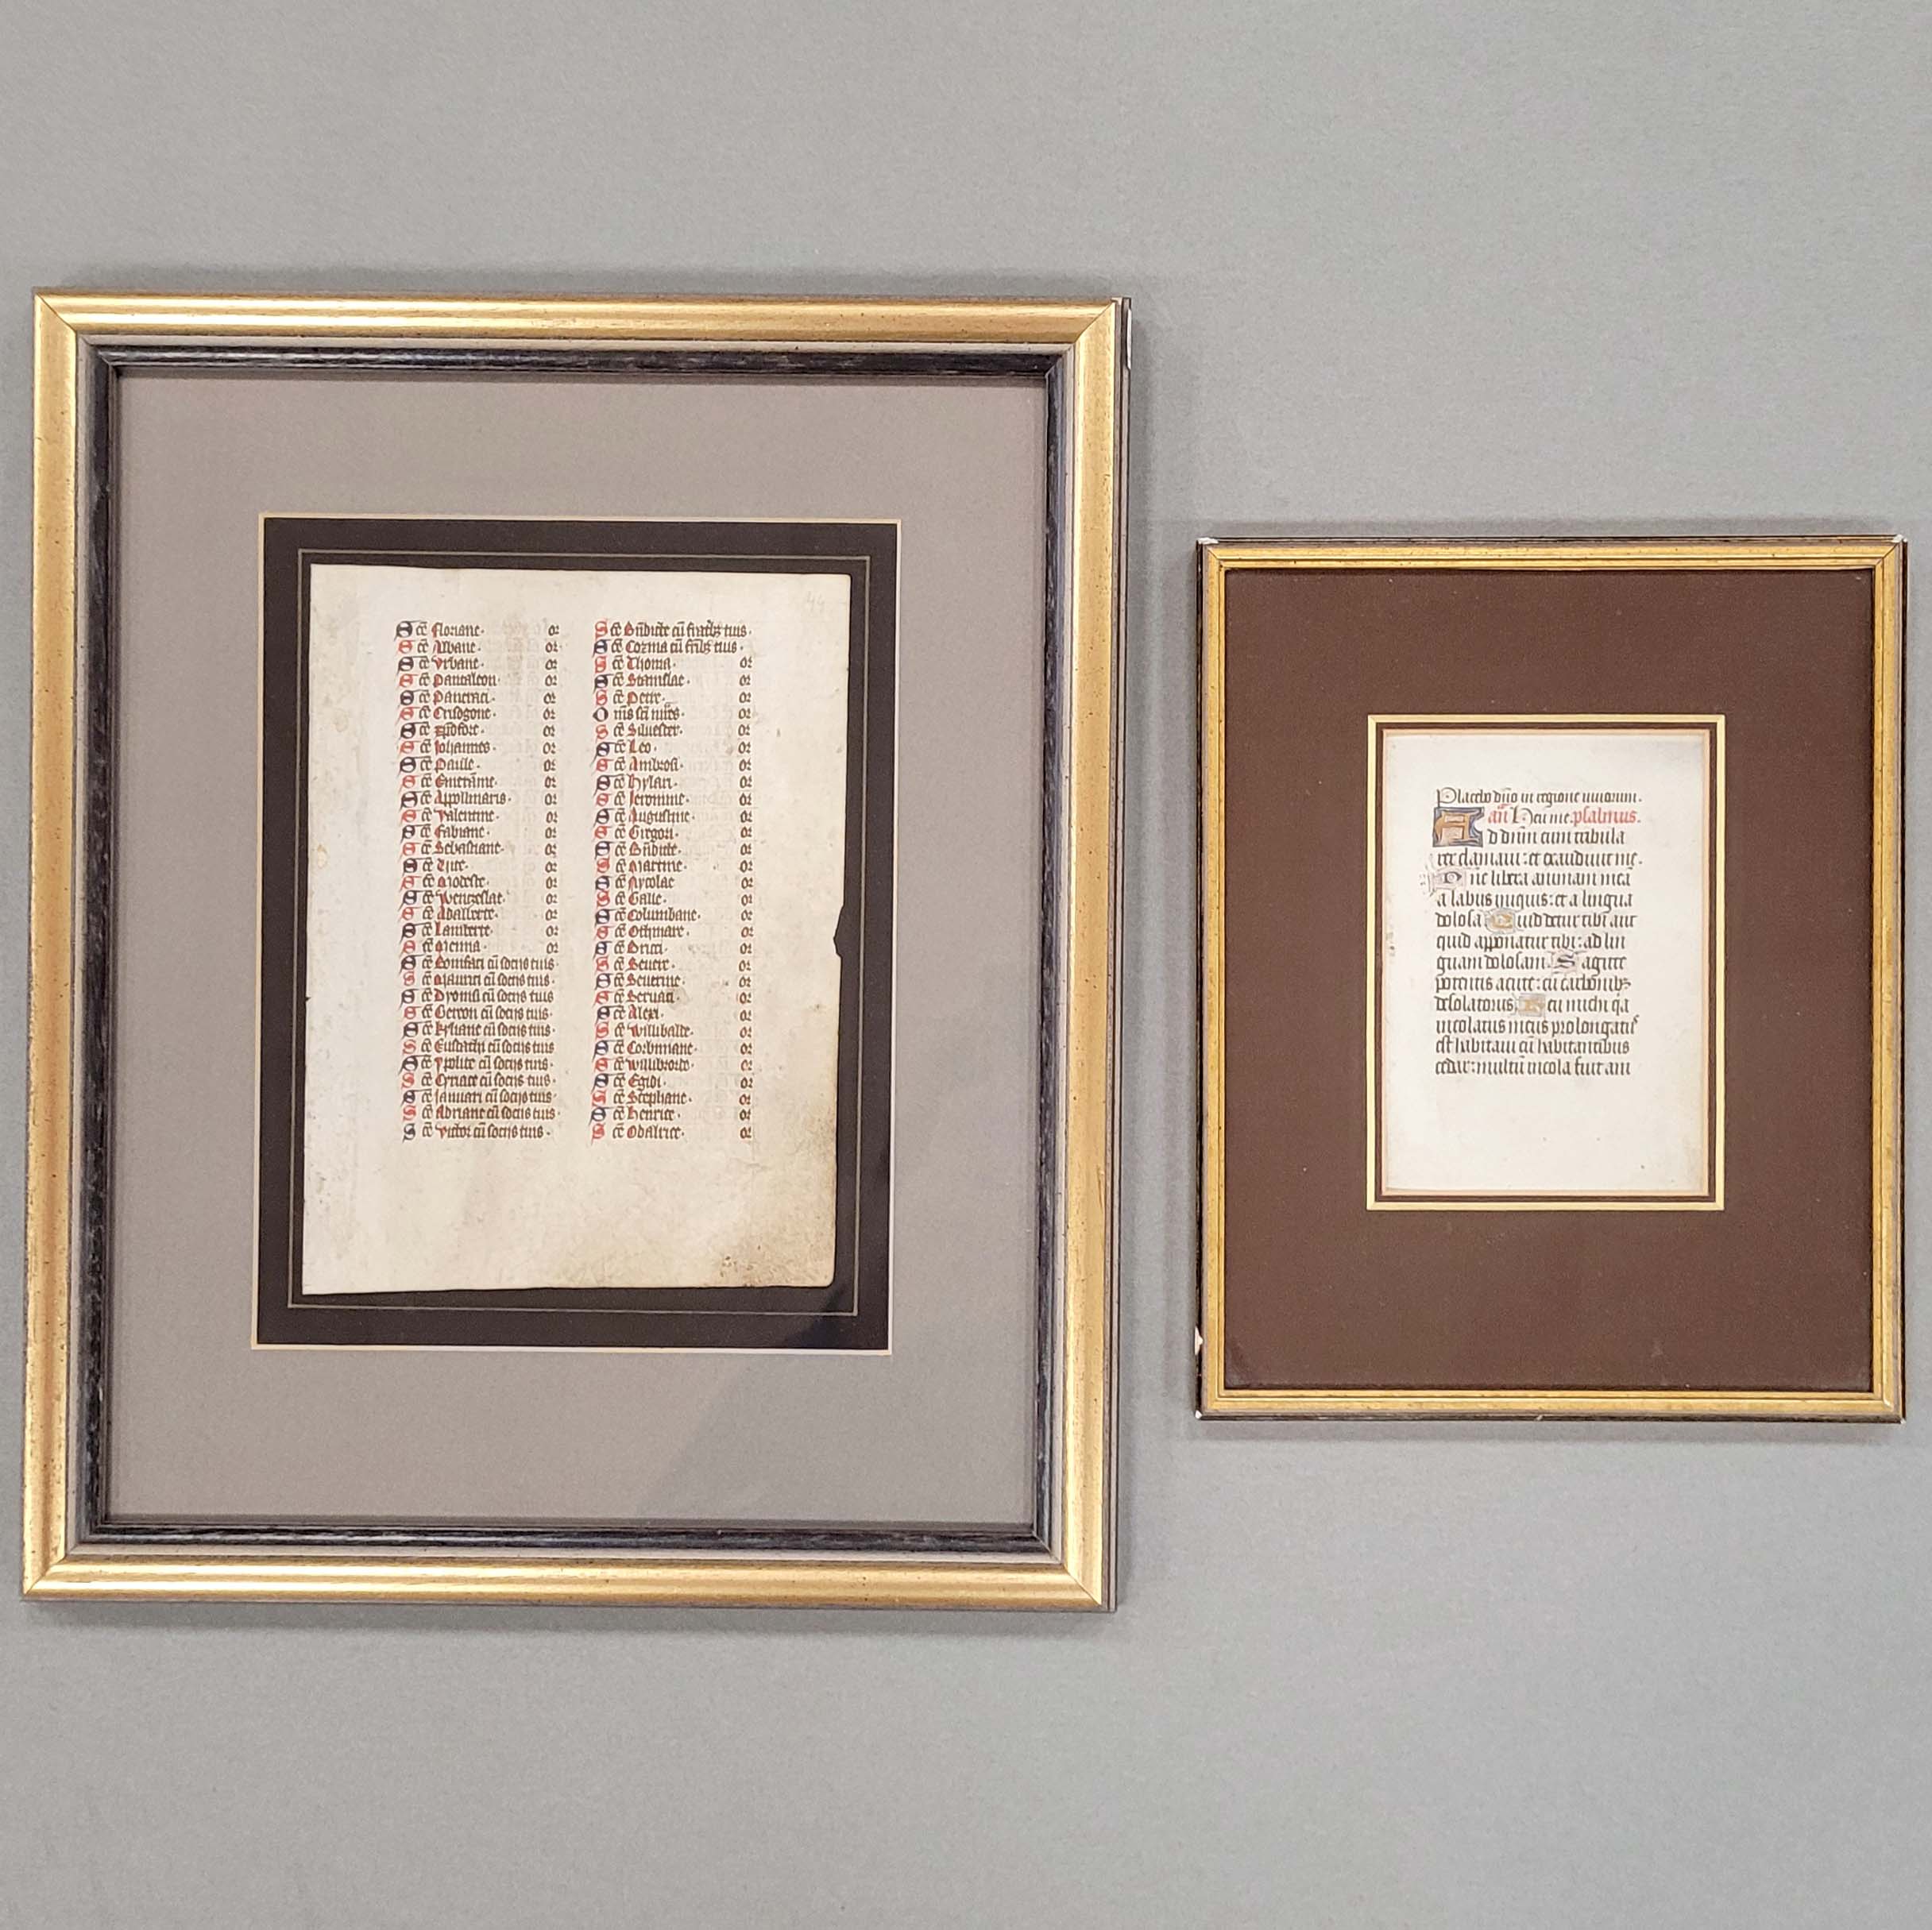 44
Sce Floriane · or
Sce Albane · or
Sce Vrbane · or
Sce Pantaleon · or
Sce Pancraci · or
Sce Crisogone · or
Sce xp̄ofore · or
Sce Johannes · or
Sce Paule · or
Sce Emerāme · or
Sce Appollinaris · or
Sce Valentine · or
Sce Fabiane · or
Sce Sebastiane · or
Sce Vite · or
Sce Modeste · or
Sce Wenzeslae · or
Sce Adalberte · or
Sce Lamberte · or
Sce Menna · or
Sce Bonifaci cū socijs tuis ·
Sce Maurici cū socijs tuis ·
Sce Dyonisi cū socijs tuis
Sce Gereon cū socijs tuis ·
Sce Kyliane cū socijs tuis ·
Sce Eustachi cū socijs tuis
Sce Ypolite cū socijs tuis ·
Sce Cyriace cū socijs tuis ·
Sce Januari cū socijs tuis ·
Sce Adriane cū socijs tuis ·
Sce Victor cū socijs tuis ·
Sce cū fratribz tuis ·
Sce Cozma cū fr̄ibz tuis ·
Sce Thoma · or
Sce Stanislae · or
Sce Petre · or
Om̄s sc̄i · or
Sce Siluester · or
Sce Leo · or
Sce Ambrosi · or
Sce Hylari · or
Sce Jeronime · or
Sce Augustine · or
Sce Gregori · or
Sce Bn̄dicte · or
Sce Martine · or
Sce Nycolae or
Sce Galle · or
Sce Columbane · or
Sce Othmare · or
Sce Bricci · or
Sce Seuere · or
Sce Seuerine · or
Sce Seruaci · or
Sce Alexi · or
Sce Willibalde · or
Sce Corbiniane · or
Sce Willibrorde · or
Sce Egidi · or
Sce Stephane · or
Sce Henrice · or
Sce Odalrice · or
Placebo dn̄o in regione uiuorum ·
an̄ Heu me · psalmus ·
Ad dn̄m cum tribula
rer clamaui : et exaudiuit me ·
Dn̄e libera animam meā
a labiis iniquis : et a lingua
dolosa Quid detur tibi aut
quid apponatur tibi : ad lin
guam dolosam Sagitte
potentis acute : cū carbonibz
desolatoriis Heu michi qa
incolatus meus prolongatus
est habitaui cū habitantibus
cedar : multū incola fuit ani